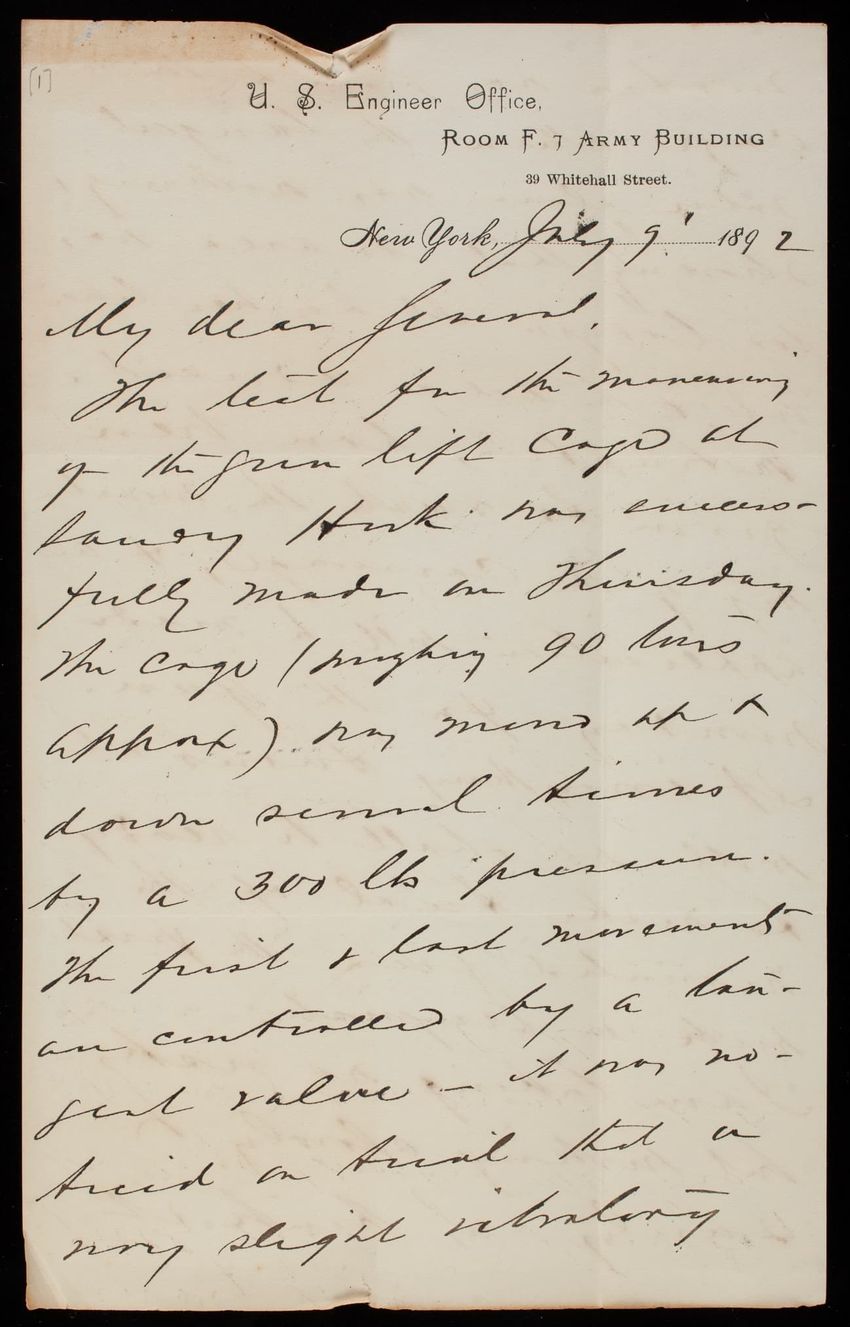 [1]
U. S. Engineer Office,
Room F. 7 Army Building
39 Whitehall Street.
New York, July 9' 1892
My dear General,
The test for the maneuvering
of the gun lift cage at
Sandy Hook was success-
fully made on Thursday.
The cage (weighing 90 tons
approx) was moved up &
down several times
by a 300 lbs pressure.
The first & last movements
are controlled by a tan-
gent valve - it was no-
ticed on trial that a
very slight vibratory